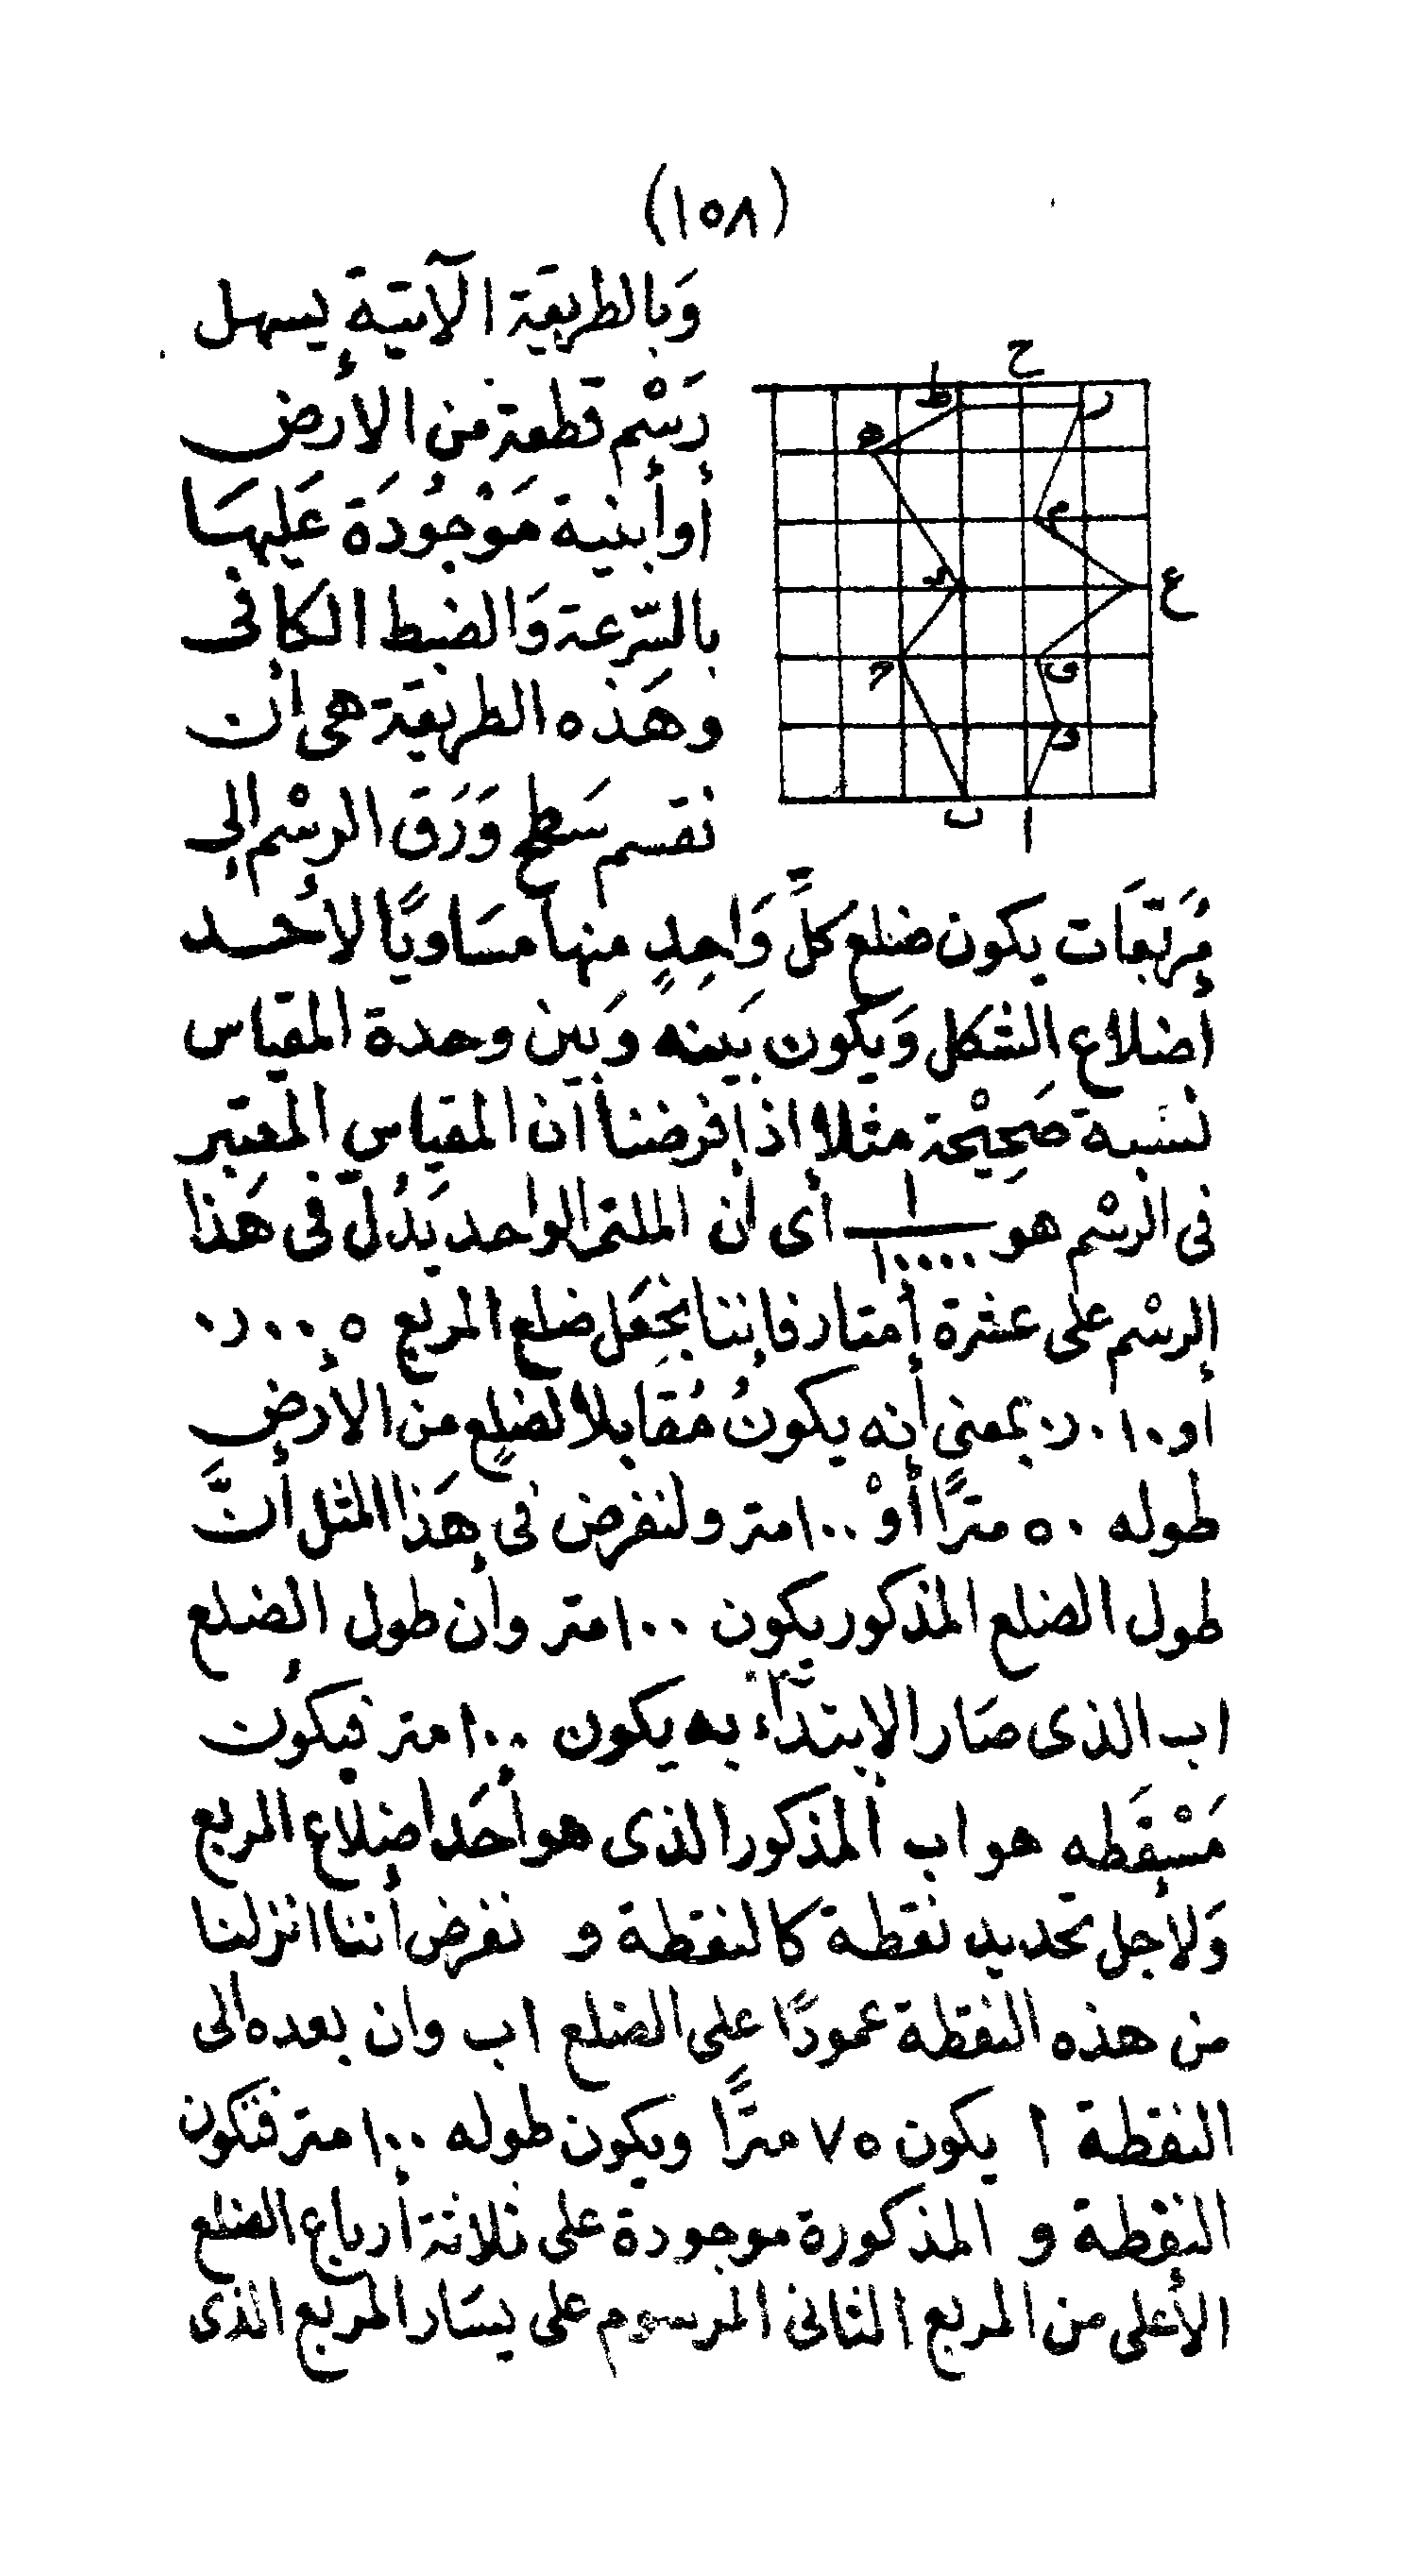 (١٥٨)
وَبالطريقة الآتية يسهل
رَسْم قطعة من الأرض
أو أبنية مَوْجُودَة عَليهَا
بالسّرعة وَالضبط الكافى
وهَذه الطريقة هى ان
نقسم سَطح وَرَق الرسْم إلى
مُرَبّعَات يكون ضلع كلِّ وَاحِدٍ منها مسَاويًا لأحد
أضلاع الشكل وَيكون بَينه وَبين وحدة المقياس
نسَبة صَحِيْحة مثلا إذا فرضنا ان المقياس المعتبر
فى الرسْم هو ١/١٠٠٠٠ أى أن الملتمر الواحد يَدُلّ فى هَذا
الرسْم على عشرة أمتار فإننا نجَعَل ضلع المربع ٠٫٠٠٥
أو ٠٫٠١٠ بمعنى أنه يكونُ مُقَابلا لضلعٍ من الأرض
طوله ٥٠ مترًا أوْ ١٠٠ متر ولنفرض فى هَذا المثل أنَّ
طول الضلع المذكور يكون ١٠٠ متر وأن طول الضلع
اب الذى صَار الابتدَاء به يكون ١٠٠ متر فيكون
مَسْقَطه هو اب المذكور الذى هو أحَد اضلاع المربع
وَلأجل تحديد نقطة كالنقطة و نفرض أننا انزلنا
من هذه النقطة عمودًا على الضلع اب وان بعده الى
النقطة ا يكون ٧٥ مترًا ويكون طوله ١٠٠ متر فتكون
النقطة و المذكورة موجودة على ثلاثة أرباع الضلع
الأعلى من المربع الثانى المرسوم على يسَار المربع الذى
ح
ط
ر
ه
م
ع
ق
و
ب
ا